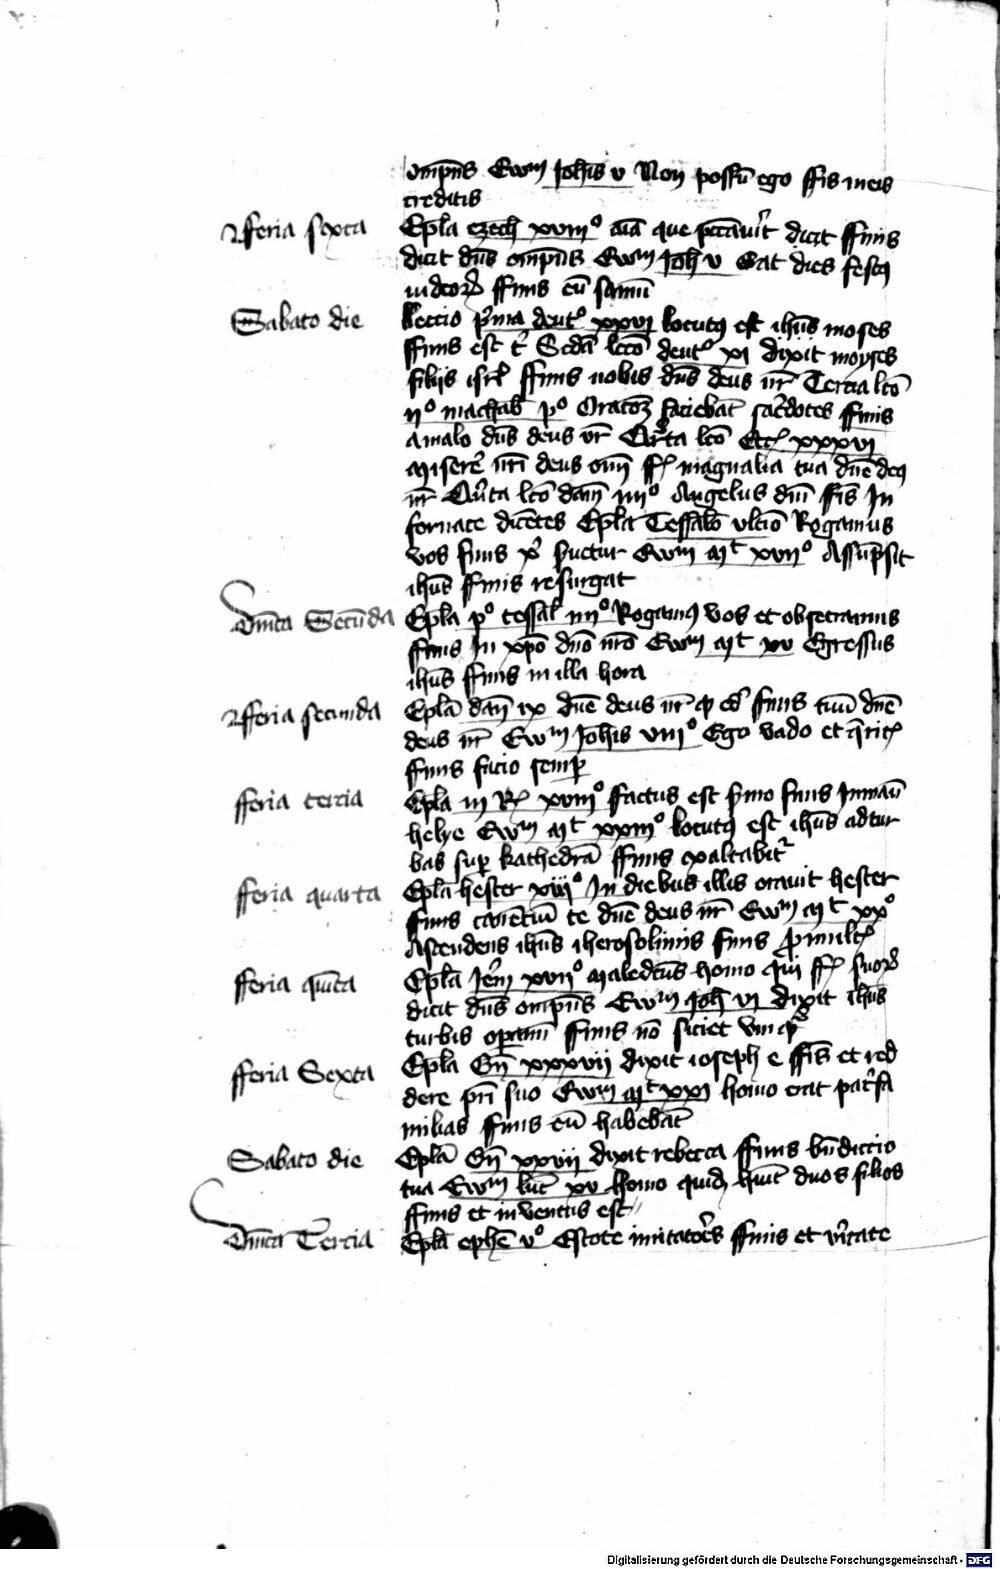 omp̄ns Ewm Joh̄is v Non possū ego ff̄is meis
creditis
fferia sexta Ep̄la ezech xviii° aīa que pccāuīt dicit ffinis
dicit dn̄s omp̄ns Ewm Joh v Erat dies festꝯ
iudeoꝝ ffinis eū sanū
Sabato die Leccio p̄ma deut° xxvi locutꝯ est ih̄us moses
ffinis est t̄ Scdā lcō deut° xi dixit moyses
filijs isrl̄ ffinis nobis dn̄s deus nr̄ Tercia lcō
ii° machab p° Oracōꝫ faciebāt sac̄dotes ffinis
a malo dn̄s deus vr̄ Qr̄ta lcō Eccꝭ xxxvi
Miserē nr̄i deus om̄ fꝭ magnalia tua dn̄e deꝯ
nr̄ Qn̄ta lcō dan̄ iii° Angelus dn̄i ff̄is In
fornace dicētes Ep̄la Tessalō vltīo Rogamus
vos finis xp̄i Ewm Mt xvii° Assūpsit
ih̄us ffinis resurgat
Dn̄ica Secūda Ep̄la p° tessal iiii° Rogamꝯ vos et obsecramus
ffinis In xp̄o dn̄o nr̄o Ewm Mt xv Egressus
ih̄us ffinis in illa hora
fferia secunda Ep̄la dan̄ ix dn̄e deus nr̄ q̄ ed̄ finis tuū dn̄e
deus nr̄ Ewm Joh̄is viii° Ego vado et q̄ritꝭ
ffinis facio semp̄
fferia tercia Ep̄la iii Rꝭ xvii° factus est s̄mo finis In manū
helye Ewm Mt xxiii° locutꝯ est ih̄us ad tur
bas sup̄ kathedrā ffinis exaltabit᷑
fferia quarta Ep̄la hester xiii° In diebus illis orauit hester
finis canētiū te dn̄e deus nr̄ Ewm Mt xx°
Ascendens ih̄us iherosolimis finis p̄ multꝭ
fferia qn̄ta Ep̄la Jerm̄ xvii° Maledc̄us homo qui fꝭ suoꝝ
dicit dn̄s omp̄ns Ewm Joh vi dixit ih̄us
turbis opam̄ ffinis nō siciet vmq̄
fferia Sexta Ep̄la Gn̄ xxxvii dixit ioseph e ff̄is et red
dere pr̄i suo Ewm Mt xxi homo erat pat̄fa
milias finis eū habebāt
Sabato die Ep̄la Gn̄ xxvii dixit rebecca ffinis bn̄diccio
tua Ewm luc̄ xv homo quidꝫ hūit duos filios
ffinis et inventus est
Dn̄ica Tercia Ep̄la ephē v° Estote imitatōes ffinis et v̄itate
Digitalisierung gefördert durch die Deutsche Forschungsgemeinschaft - DFG